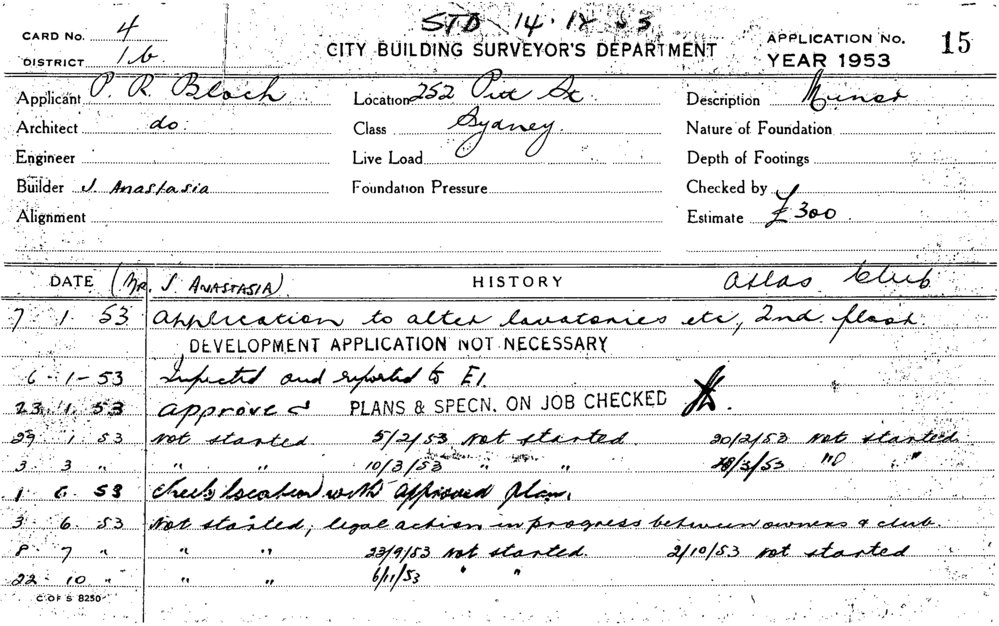 STD 14. IX 53
CARD No. 4
CITY BUILDING SURVEYOR'S DEPARTMENT
APPLICATION No. 15
DISTRICT 1b
YEAR 1953
Applicant P. R. Bloch
Location 252 Pitt St.
Description Minor
Architect do.
Class Sydney.
Nature of Foundation
Engineer
Live Load
Depth of Footings
Builder J. Anastasia
Foundation Pressure
Checked by
Alignment
Estimate £300
DATE (Mr. J. ANASTASIA) HISTORY Atlas Club
7 1 53 Application to alter lavatories etc, 2nd. floor.
DEVELOPMENT APPLICATION NOT NECESSARY
6-1-53 Inspected and reported to E1.
23 1 53 Approved PLANS & SPECN. ON JOB CHECKED
29 1 53 Not started. 5/2/53 Not started. 20/2/53 Not started
3 3 " " " 10/3/53 " " /3/53 " "
1 6 53 Check location with approved plan.
3 6 53 Not started, legal action in progress between owners & club.
8 7 " " " 23/9/53 Not started. 2/10/53 Not started
22 10 " " " 6/11/53 " "
C OF S 8250